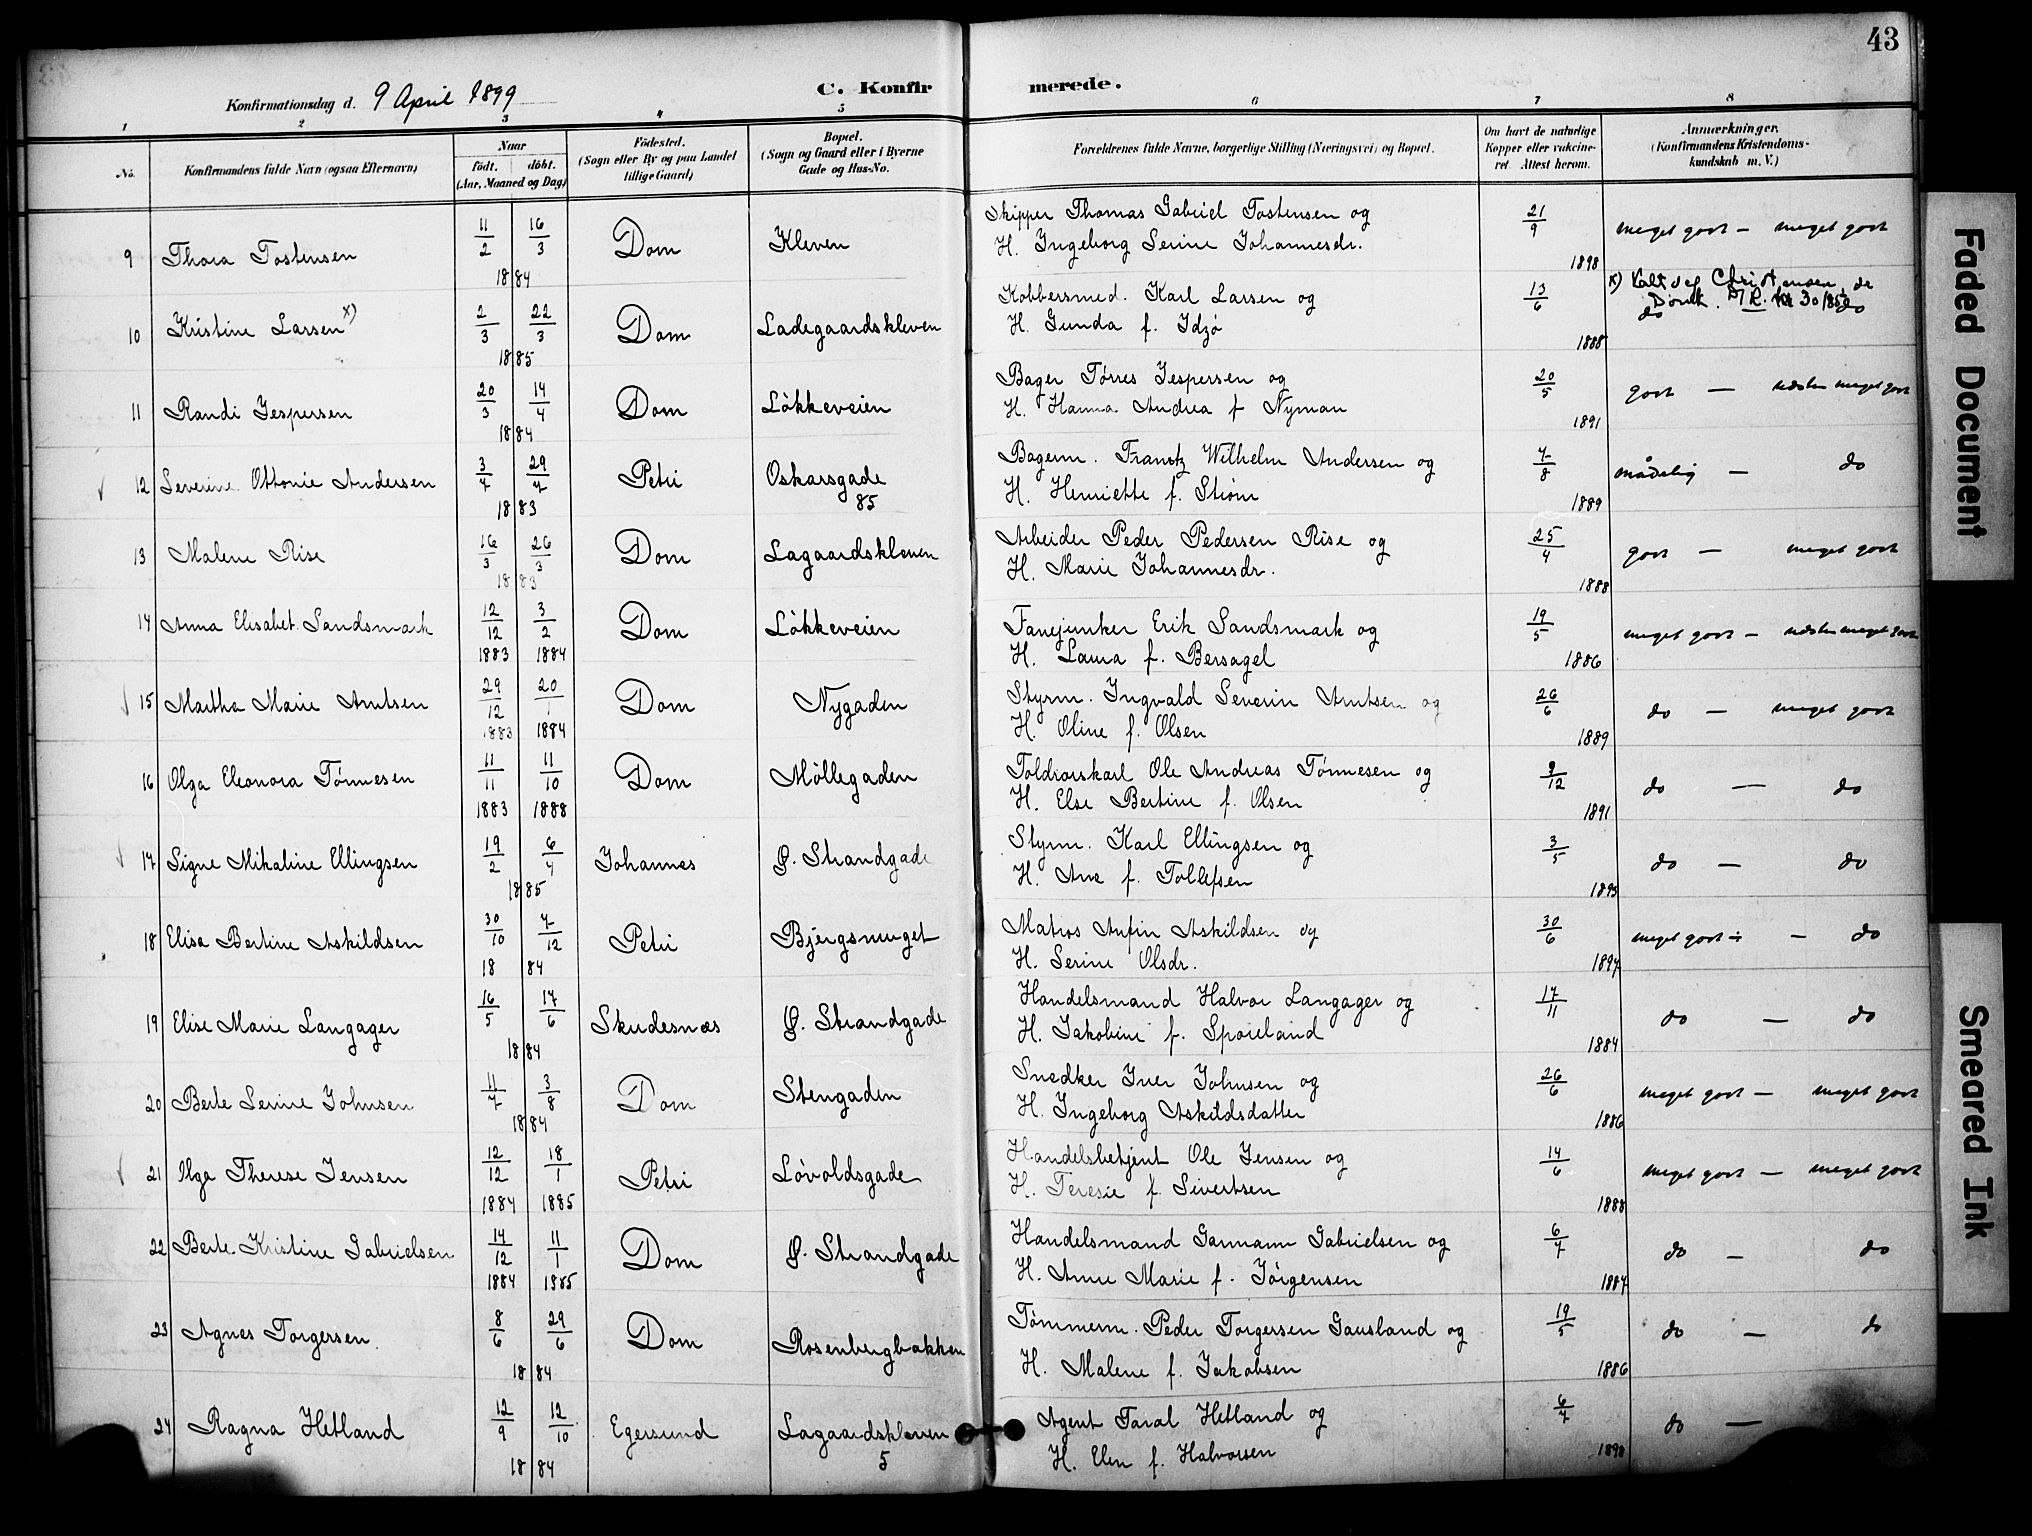 43
Konfirmationsdag d. 9 April 1899
C. Konfirmerede.
1 2 3 4 5 6 7 8
No. Konfirmandens fulde Navn (ogsaa Efternavn) Naar født. døbt. (Aar, Maaned og Dag) Fødested. (Sogn eller By og paa Landet tillige Gaard) Bopæl. (Sogn og Gaard eller i Byerne Gade og Hus-No. Forældrenes fulde Navne, borgerlige Stilling (Næringsvei) og Bopæl. Om havt de naturlige Kopper eller vakcineret. Attest herom. Anmærkninger. (Konfirmandens Kristendomskundskab m. V.)
9 Thora Tostensen 11/2 16/3 1884 Dom Kleven Skipper Thomas Gabriel Tostensen og
H. Ingeborg Serine Johannesdr. 21/9 1898 meget godt — meget godt
10 Kristine Larsen x) 2/3 22/3 1885 Dom Ladegaardskleven Kobbersmed. Karl Larsen og
H. Gunda f. Idzø 13/6 1888 x) Kalt seg Christensen, de
do do
11 Randi Jespersen 20/3 14/4 1884 Dom Løkkeveien Bager Tørres Jespersen og
H. Hanna Andrea f Nyman 20/5 1891 godt — næsten meget godt
12 Severine Ottonie Andersen 3/7 29/7 1883 Petri Oskarsgade 85 Bagerm. Frantz Wilhelm Andersen og
H. Henriette f. Strøm 7/8 1889 mådelig — do
13 Malene Rise 16/3 26/3 1883 Dom Lagaardskleven Arbeider Peder Pedersen Rise og
H. Marie Johannesdr. 25/4 1888 godt — meget godt
14 Anna Elisabet Sandsmark 12/12 1883 3/2 1884 Dom Løkkeveien Fanejunker Erik Sandsmark og
H. Laura f. Bersagel 19/5 1886 meget godt — næsten meget godt
15 Martha Marie Arntsen 29/12 1883 20/1 1884 Dom Nygaden Styrm. Ingvald Severin Arntsen og
H. Oline f. Olsen 26/6 1889 do — meget godt
16 Olga Eleonora Tønnesen 11/11 1883 11/10 1888 Dom Møllegaden Toldrorskarl Ole Andreas Tønnesen og
H. Else Bertine f. Olsen 9/12 1891 do — do
17 Signe Mikaline Ellingsen 19/2 6/4 1885 Johannes Ø. Strandgade Styrm. Karl Ellingsen og
H. Ane f. Tollefsen 3/5 1893 do — do
18 Elisa Bertine Askildsen 30/10 7/12 1884 Petri Bjergsmuget Matros Anfin Askildsen og
H. Serine Olsdr. 30/6 1897 meget godt ÷ — do
19 Elise Marie Langager 16/5 17/6 1884 Skudesnæs Ø. Strandgade Handelsmand Halvor Langager og
H. Jakobine f. Spoieland 17/11 1884 do — do
20 Berte Serine Johnsen 11/7 3/8 1884 Dom Stengaden Snedker Iver Johnsen og
H. Ingeborg Askildsdatter 26/6 1886 meget godt — meget godt
21 Olga Therese Jensen 12/12 1884 18/1 1885 Petri Løvoldsgade Handelsbetjent Ole Jensen og
H. Teresie f. Sivertsen 14/6 1888 meget godt — meget godt
22 Berte Kristine Gabrielsen 14/12 1884 11/1 1885 Dom Ø. Strandgade Handelsmand Garmann Gabrielsen og
H. Anne Marie f. Jørgensen 6/7 1887 do — do
23 Agnes Torgersen 8/6 29/6 1884 Dom Rosenbergbakken Tømmerm. Peder Torgersen Gausland og
H. Malene f. Jakobsen 19/5 1886 do — do
24 Ragna Hetland 12/9 12/10 1884 Egersund Lagaardskleven 5 Agent Taral Hetland og
H. Elen f. Halvorsen 6/7 1898 do —
Faded Document
Smeared Ink